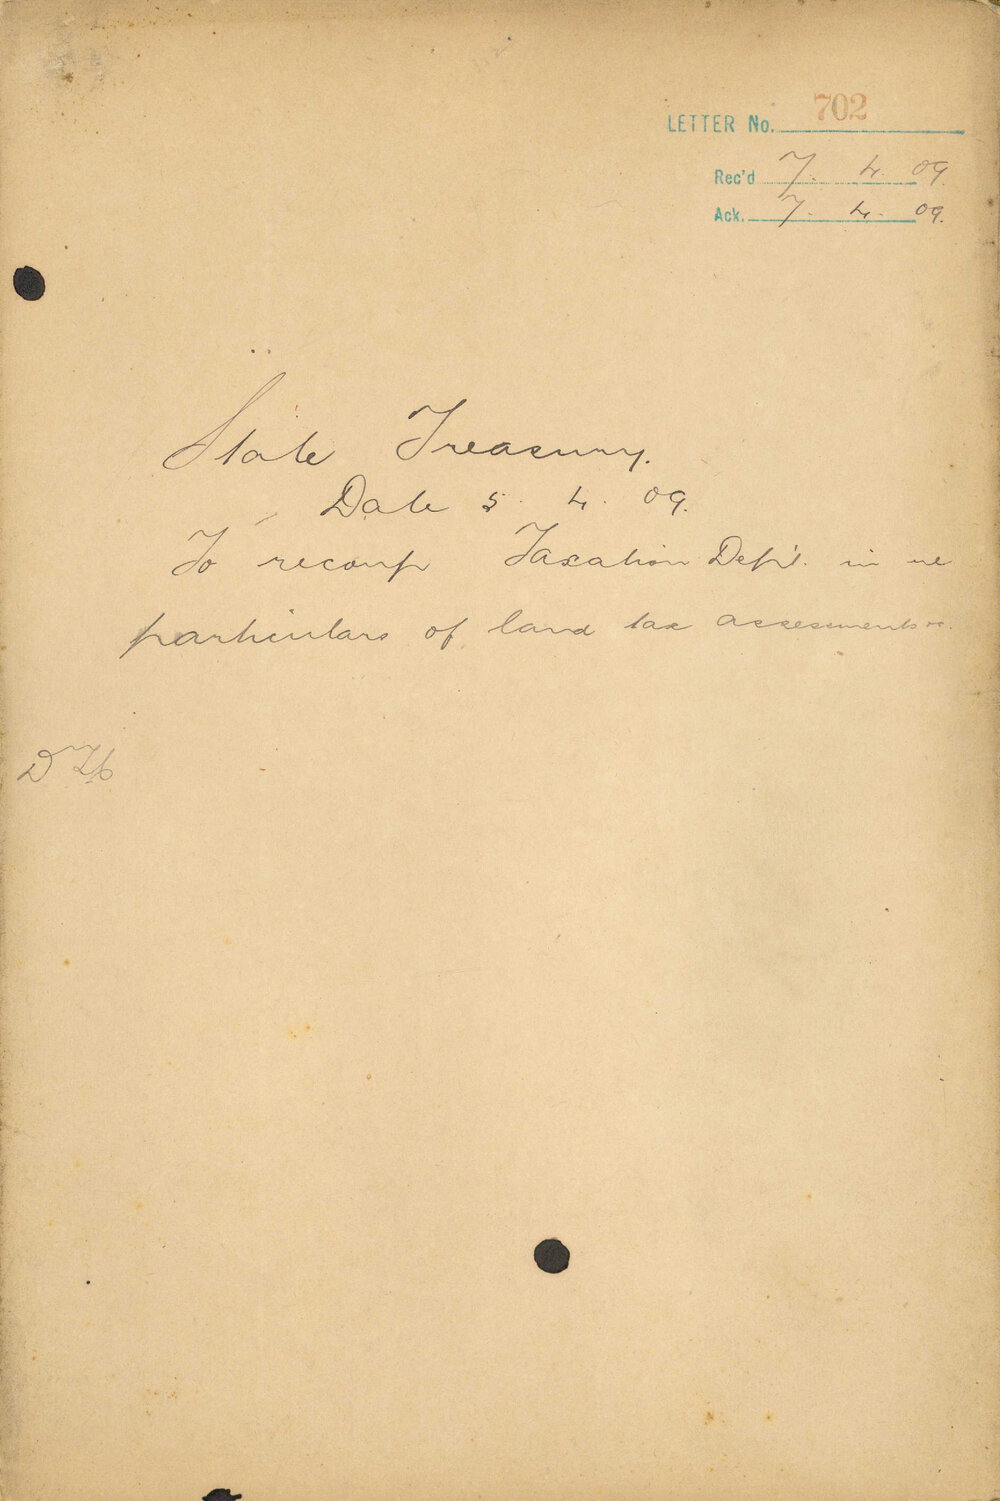 LETTER No. 702
Rec'd 7. 4. 09.
Ack. 7. 4. 09.
State Treasury.
Date 5. 4. 09.
To recoup Taxation Dep't. in re
particulars of land tax assessments